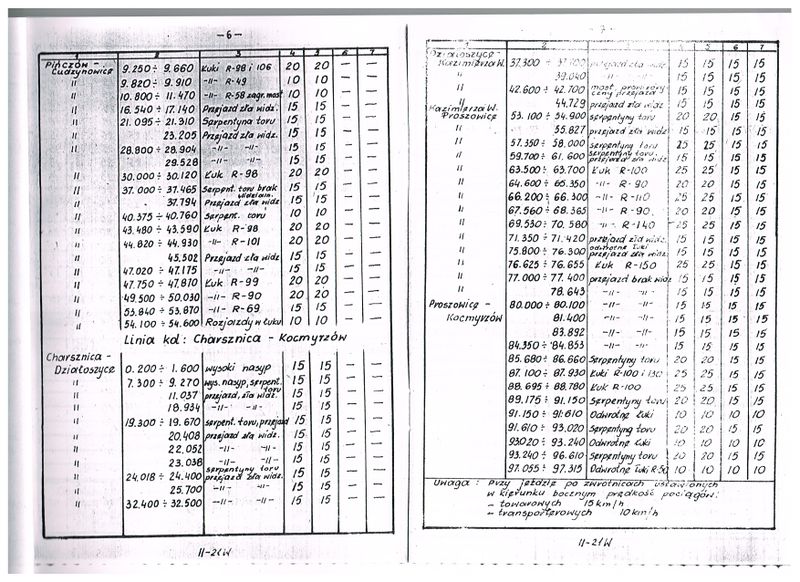 - 6 -
1 2 3 4 5 6 7
Pińczów - Cudzynowice 9.250 ÷ 9.660 Łuki R-98 i 106 20 20 — —
" 9.820 ÷ 9.910 -"- R-49 10 10 — —
" 10.800 ÷ 11.470 -"- R-58 zagr. most 10 10 — —
" 16.540 ÷ 17.140 Przejazd zła widz. 15 15 — —
" 21.095 ÷ 21.910 Serpentyna toru 15 15 — —
" 23.205 Przejazd zła widz. 15 15 — —
" 28.800 ÷ 28.904 -"- -"- 15 15 — —
" 29.528 -"- -"- 15 15 — —
" 30.000 ÷ 30.120 Łuk R-98 20 20 — —
" 37.000 ÷ 37.465 Serpent. toru brak widzialn. 15 15 — —
" 37.794 Przejazd zła widz 15 15 — —
" 40.375 ÷ 40.760 Serpent. toru 10 10 — —
" 43.480 ÷ 43.590 Łuk R-98 20 20 — —
" 44.820 ÷ 44.930 -"- R-101 20 20 — —
" 45.502 Przejazd zła widz 15 15 — —
" 47.020 ÷ 47.175 -"- -"- 15 15 — —
" 47.750 ÷ 47.810 Łuk R-99 20 20 — —
" 49.500 ÷ 50.030 -"- R-90 20 20 — —
" 53.840 ÷ 53.870 -"- R-69 15 15 — —
" 54.100 ÷ 54.600 Rozjazdy w łuku 10 10 — —
Linia kol: Charsznica - Kocmyrzów
Charsznica - Działoszyce 0.200 ÷ 1.600 wysoki nasyp 15 15 — —
" 7.300 ÷ 9.270 wys. nasyp, serpent. toru 15 15 — —
" 11.037 przejazd, zła widz. 15 15 — —
" 18.934 -"- -"- 15 15 — —
" 19.300 ÷ 19.670 serpent. toru, przejazd 15 15 — —
" 20.408 przejazd zła widz. 15 15 — —
" 22.052 -"- -"- 15 15 — —
" 23.038 -"- -"- 15 15 — —
" 24.018 ÷ 24.400 serpentyny toru przejazd zła widz. 15 15 — —
" 25.700 -"- -"- 15 15 — —
" 32.400 ÷ 32.500 -"- -"- 15 15 — —
II-21W
- 7 -
1 2 3 4 5 6 7
Działoszyce - Kazimierza W. 37.300 ÷ przejazd zła widz 15 15 15 15
" 39.040 -"- -"- 15 15 15 15
" 42.600 ÷ 42.700 most prowizoryczny przejazd 15 15 15 15
" 44.729 przejazd zła widz 15 15 15 15
Kazimierza W. Proszowice 53.100 ÷ 54.900 serpentyny toru 20 20 15 15
" 55.827 przejazd zła widz 15 15 15 15
" 57.350 ÷ 58.000 serpentyny toru 25 25 15 15
" 59.700 ÷ 61.600 serpentyny toru, przejazd zła widz. 15 15 15 15
" 63.500 ÷ 63.700 Łuk R-100 25 25 15 15
" 64.600 ÷ 65.350 -"- R-90 20 20 15 15
" 66.200 ÷ 66.300 -"- R-110 25 25 15 15
" 67.560 ÷ 68.365 -"- R-90. 20 20 15 15
" 69.530 ÷ 70.580 -"- R-140 25 25 15 15
" 71.350 ÷ 71.420 przejazd zła widz. 15 15 15 15
" 75.800 ÷ 76.300 odwrotne łuki przejazd zła widz. 15 15 15 15
" 76.625 ÷ 76.655 Łuk R-150 25 25 15 15
" 77.000 ÷ 77.400 przejazd brak widz 15 15 15 15
" 78.643 -"- -"- 15 15 15 15
Proszowice - Kocmyrzów 80.000 ÷ 80.100 -"- -"- 15 15 15 15
81.400 -"- -"- 15 15 15 15
83.892 -"- -"- 15 15 15 15
84.350 ÷ 84.853 -"- -"- 15 15 15 15
85.680 ÷ 86.660 Serpentyny toru 20 20 15 15
87.100 ÷ 87.930 Łuki R-100 i 130 25 25 15 15
88.695 ÷ 88.780 Łuk R-100 25 25 15 15
89.175 ÷ 91.150 Serpentyny toru 20 20 15 15
91.150 ÷ 91.610 Odwrotne Łuki 10 10 10 10
91.610 ÷ 93.020 Serpentyny toru 20 20 15 15
93020 ÷ 93.240 Odwrotne Łuki 10 10 10 10
93.240 ÷ 96.610 Serpentyny toru 20 20 15 15
97.055 ÷ 97.315 Odwrotne Łuki R-50 10 10 10 10
Uwaga : Przy jeździe po zwrotnicach ustawionych
w kierunku bocznym prędkość pociągów:
- towarowych 15 km/h
- transporterowych 10 km/h
II-21W